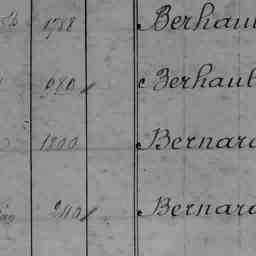 1788 Berhau
980 Berhaul
1800 Bernar
240 Bernar